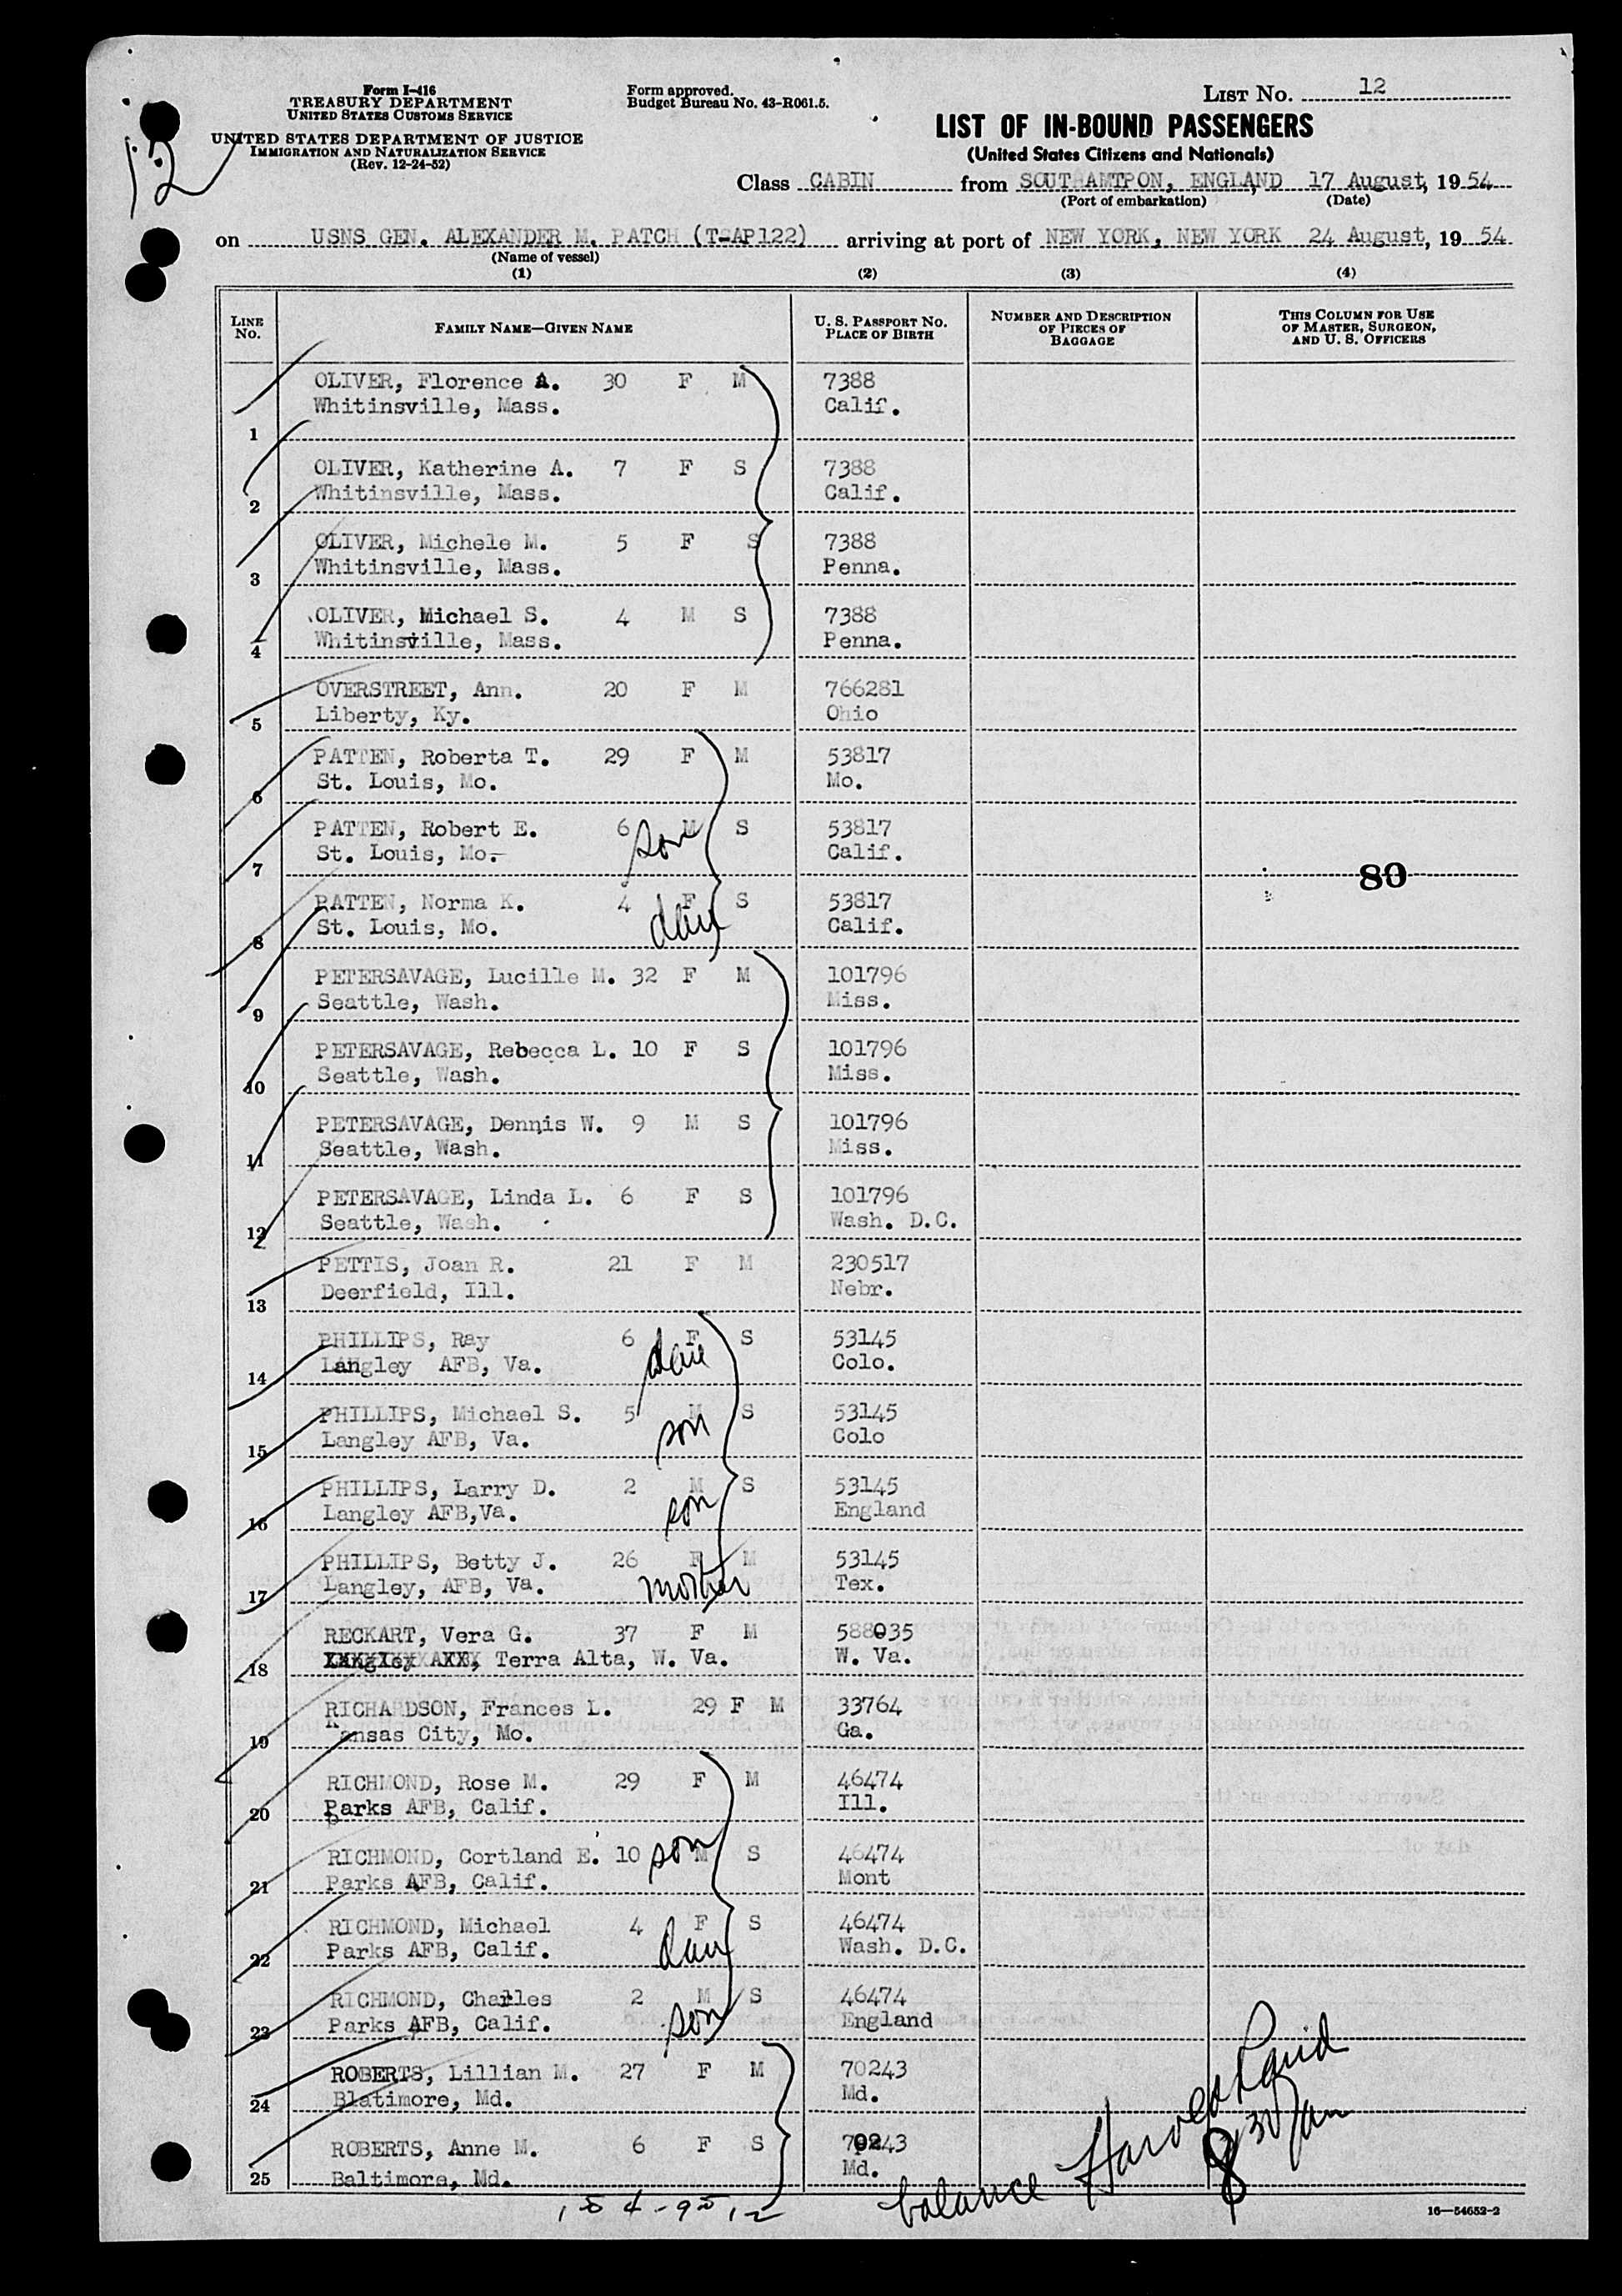 Form I-416
TREASURY DEPARTMENT
UNITED STATES CUSTOMS SERVICE
UNITED STATES DEPARTMENT OF JUSTICE
IMMIGRATION AND NATURALIZATION SERVICE
(Rev. 12-24-52)
12
Form approved.
Budget Bureau No. 43-R061.5.
LIST NO. 12
LIST OF IN-BOUND PASSENGERS
(United States Citizens and Nationals)
Class CABIN from SOUTHAMTPON, ENGLAND 17 August, 1954
(Port of embarkation) (Date)
on USNS GEN. ALEXANDER M. PATCH (T-AP122) arriving at port of NEW YORK, NEW YORK 24 August, 19 54
(Name of vessel)
(1) (2) (3) (4)
LINE NO. FAMILY NAME—GIVEN NAME U. S. PASSPORT NO. PLACE OF BIRTH NUMBER AND DESCRIPTION OF PIECES OF BAGGAGE THIS COLUMN FOR USE OF MASTER, SURGEON, AND U. S. OFFICERS
OLIVER, Florence A. 30 F M 7388
1 Whitinsville, Mass. Calif.
OLIVER, Katherine A. 7 F S 7388
2 Whitinsville, Mass. Calif.
OLIVER, Michele M. 5 F S 7388
3 Whitinsville, Mass. Penna.
OLIVER, Michael S. 4 M S 7388
4 Whitinsville, Mass. Penna.
OVERSTREET, Ann. 20 F M 766281
5 Liberty, Ky. Ohio
PATTEN, Roberta T. 29 F M 53817
6 St. Louis, Mo. Mo.
PATTEN, Robert E. 6 M S 53817
7 St. Louis, Mo. son Calif.
80
PATTEN, Norma K. 4 F S 53817
8 St. Louis, Mo. dau Calif.
PETERSAVAGE, Lucille M. 32 F M 101796
9 Seattle, Wash. Miss.
PETERSAVAGE, Rebecca L. 10 F S 101796
10 Seattle, Wash. Miss.
PETERSAVAGE, Dennis W. 9 M S 101796
11 Seattle, Wash. Miss.
PETERSAVAGE, Linda L. 6 F S 101796
12 Seattle, Wash. Wash. D.C.
PETTIS, Joan R. 21 F M 230517
13 Deerfield, Ill. Nebr.
PHILLIPS, Ray 6 F S 53145
14 Langley AFB, Va. dau Colo.
PHILLIPS, Michael S. 5 M S 53145
15 Langley AFB, Va. son Colo
PHILLIPS, Larry D. 2 M S 53145
16 Langley AFB,Va. son England
PHILLIPS, Betty J. 26 F M 53145
17 Langley, AFB, Va. mother Tex.
RECKART, Vera G. 37 F M 588035
18 Terra Alta, W. Va. W. Va.
RICHARDSON, Frances L. 29 F M 33764
19 Kansas City, Mo. Ga.
RICHMOND, Rose M. 29 F M 46474
20 Parks AFB, Calif. Ill.
RICHMOND, Cortland E. 10 son M S 46474
21 Parks AFB, Calif. Mont
RICHMOND, Michael 4 F S 46474
22 Parks AFB, Calif. dau Wash. D.C.
RICHMOND, Charles 2 M S 46474
23 Parks AFB, Calif. son England
ROBERTS, Lillian M. 27 F M 70243
24 Blatimore, Md. Md.
ROBERTS, Anne M. 6 F S 70243
25 Baltimore, Md. Md.
balance
8
16—54652-2